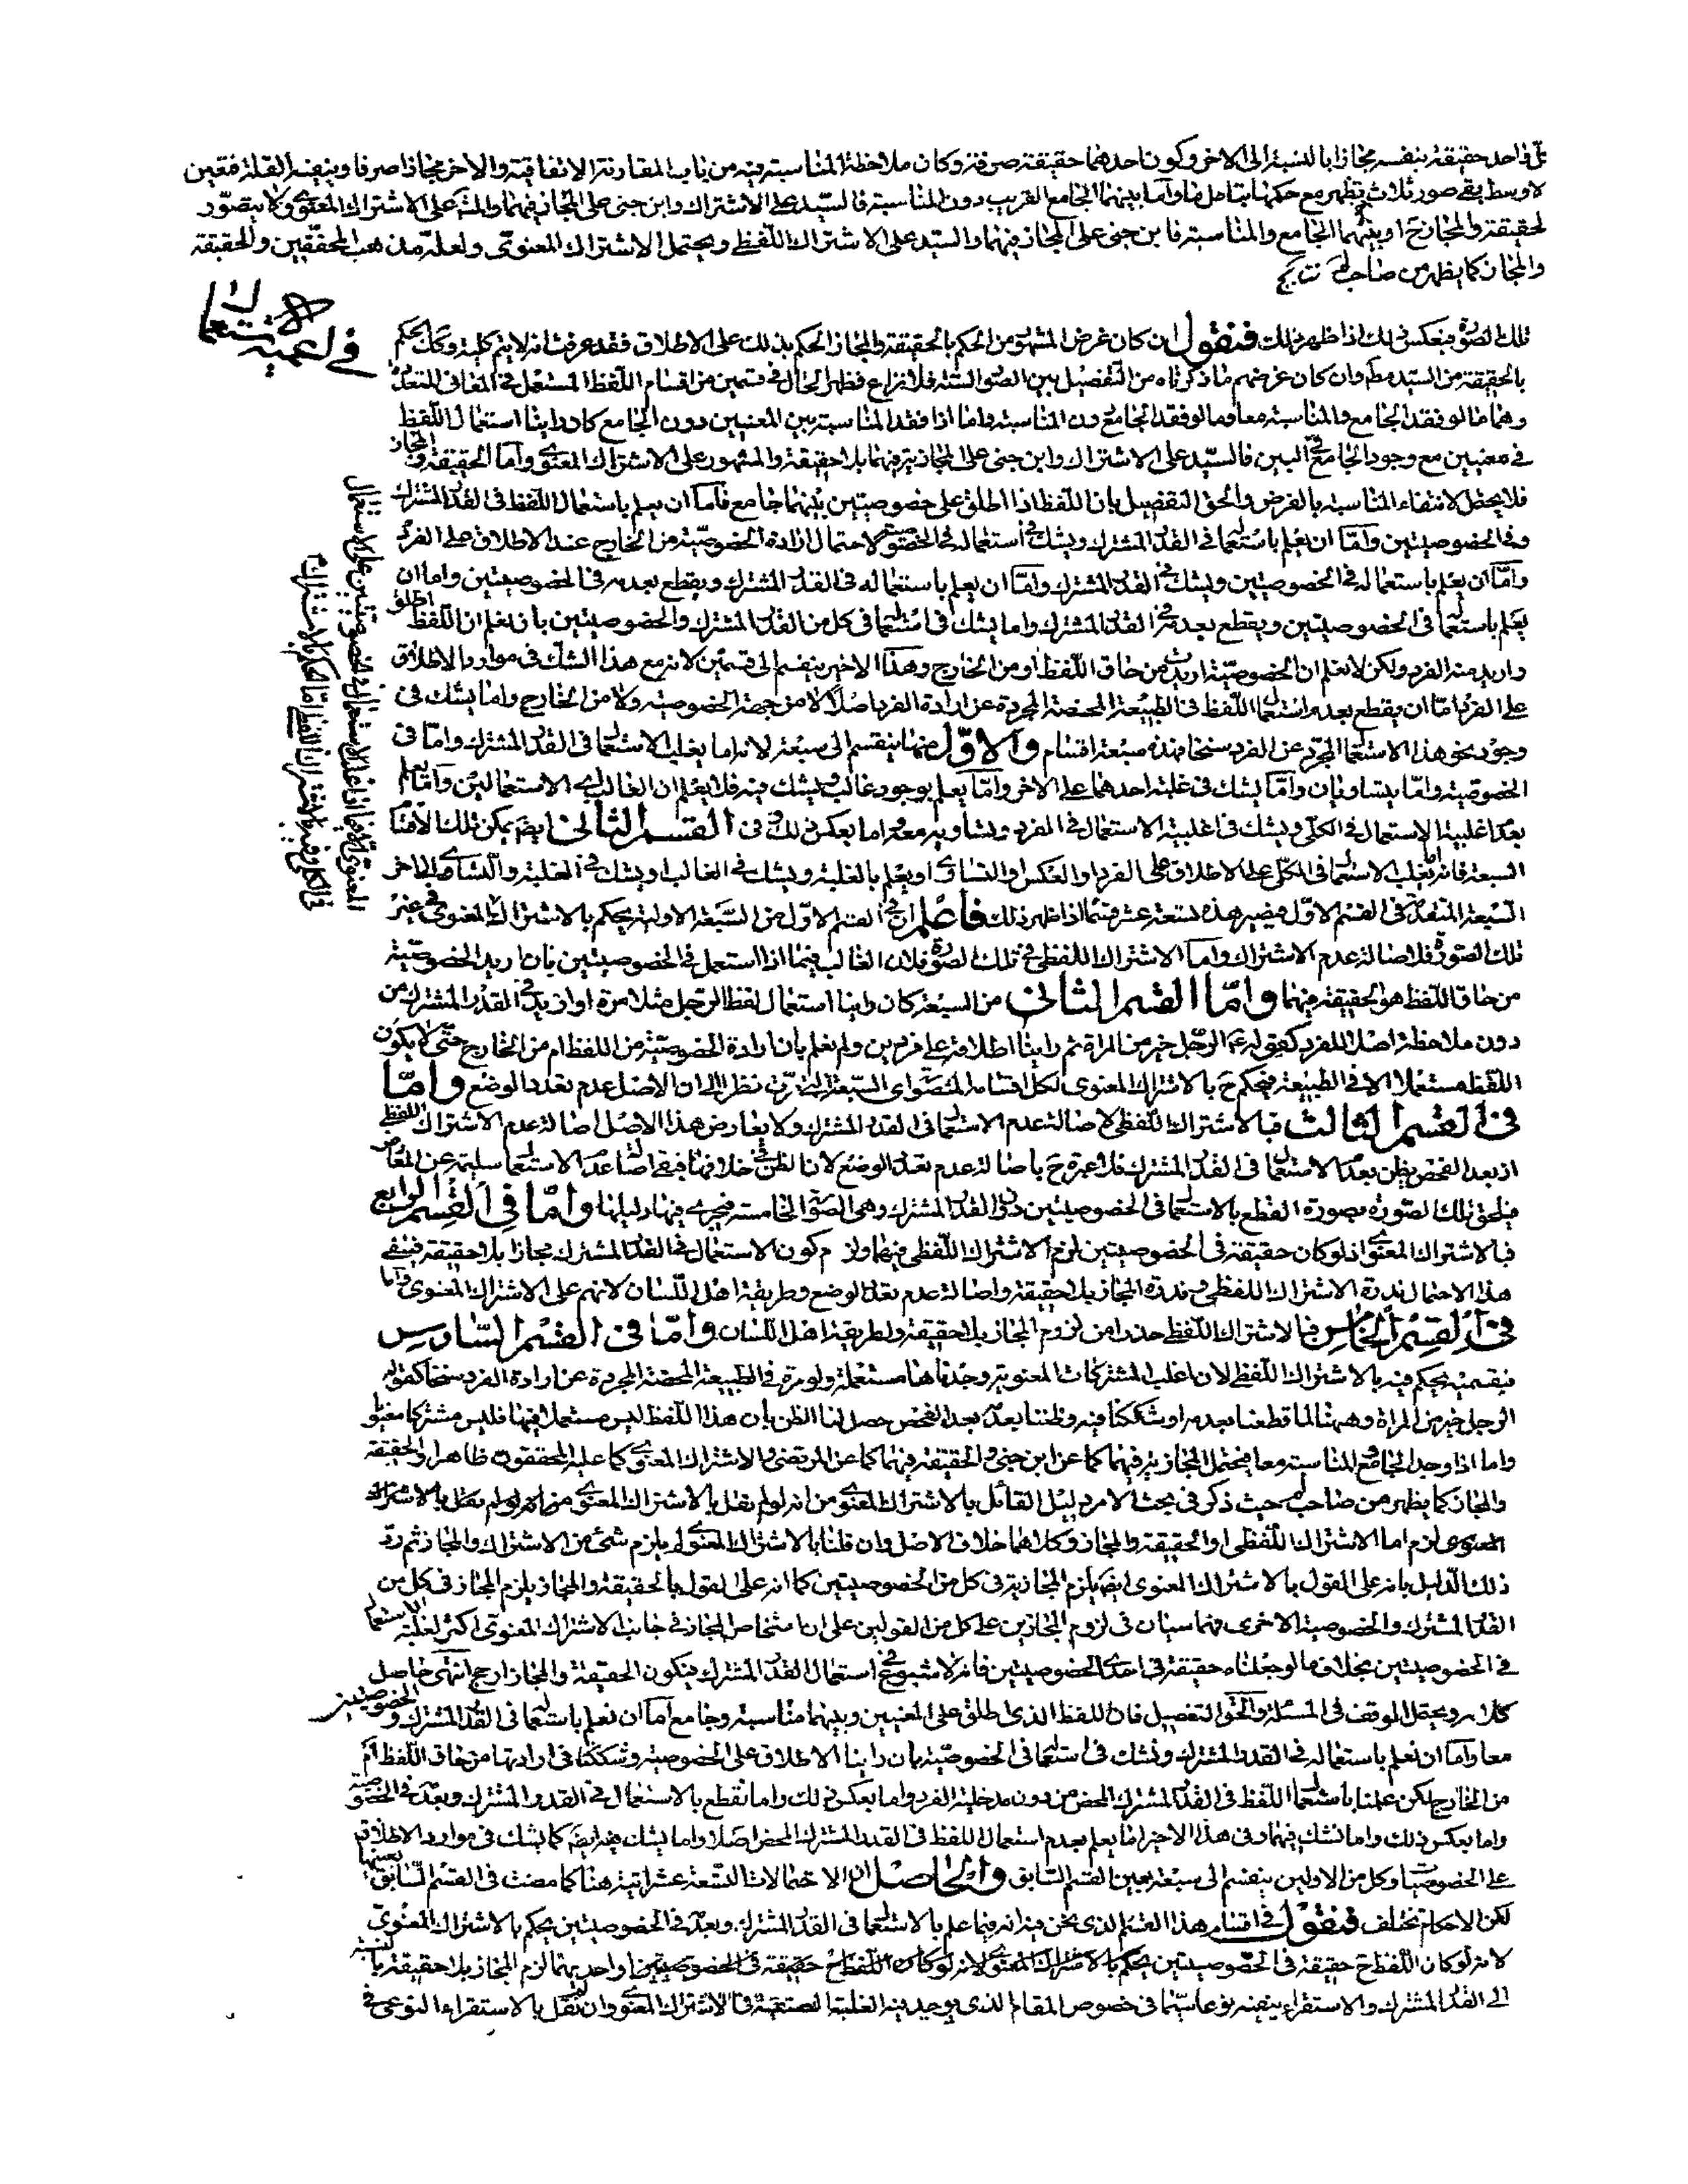 كل واحد حقيقة بنفسه مجازا بالنسبة الى الاخر وكون احدهما حقيقة صرفة وكان ملاحظة المناسبة فيه من باب المقارنة الاتفاقية والاخر مجازا صرفا وينفيه القلة فتعين
لاوسط بقى صور ثلاث يظهر مع حكمها بتامل ما واما بينهما الجامع القريب دون المناسبة فالسيد على الاشتراك وابن جنى على المجاز فيهما والمش على الاشتراك المعنوى ولا يتصور
لحقيقة والمجاز ح او بينهما الجامع والمناسبة فابن جنى على المجاز فيهما والسيد على الاشتراك اللفظى ويحتمل الاشتراك المعنوى ولعله مذهب المحققين والحقيقة
والمجاز كما يظهر من صاحب
فى اعمية الاستعمال
تلك الصورة فبعكس ذلك اذا ظهر ذلك فنقول ان كان غرض المشهور من الحكم بالحقيقة والمجاز الحكم بذلك على الاطلاق فقد عرفت انه لا يتم كلية وكك الحكم
بالحقيقة من السيد مط وان كان غرضهم ما ذكرناه من التفصيل بين الصور الستة فلا نزاع فظهر الحال فى قسمين من اقسام اللفظ المستعمل فى المعانى المتعددة
وهما ما لو فقد الجامع والمناسبة معا وما لو فقد الجامع دون المناسبة واما اذا فقد المناسبة بين المعنيين دون الجامع كما درايتا استعمال اللفظ
فى معنيين مع وجود الجامع فى البين فالسيد على الاشتراك وابن جنى على المجازية فيهما بلا حقيقة والمشهور على الاشتراك المعنوى واما الحقيقة والمجاز
فلا يحصل لانتفاء المناسبة بالفرض والحق التفصيل بان اللفظ اذا اطلق على خصوصيتين بينهما جامع فاما ان يعلم باستعمال اللفظ فى القدر المشترك
وفى الخصوصيتين واما ان يعلم باستعماله فى القدر المشترك ويشك فى استعماله فى الخصوصية لاحتمال ارادة الخصوصية من الخارج عند الاطلاق على الفرد
واما ان يعلم باستعماله فى الخصوصيتين ويشك فى القدر المشترك واما ان يعلم باستعماله فى القدر المشترك ويقطع بعدمه فى الخصوصيتين واما ان
يعلم باستعماله فى الخصوصيتين ويقطع بعدمه فى القدر المشترك واما يشك فى استعماله فى كل من القدر المشترك والخصوصيتين بان نعلم ان اللفظ اطلق
واريد منه الفرد ولكن لا نعلم ان الخصوصية اريدت من حاق اللفظ او من الخارج وهذا الاخير ينقسم الى قسمين لانه مع هذا الشك فى موارد الاطلاق
على الفرد اما ان يقطع بعدم استعمال اللفظ فى الطبيعة المحضة المجردة عن ارادة الفرد اصلا لا من جهة الخصوصية ولا من الخارج واما يشك فى
وجود نحو هذا الاستعمال المجرد عن الفرد سنخا فهذه سبعة اقسام والاول منها ينقسم الى سبعة لانه اما يغلب الاستعمال فى القدر المشترك واما فى
الخصوصية واما يتساويان واما يشك فى غلبة احدهما على الاخر واما يعلم بوجود غالب يشك فيه فلا يعلم ان الغالب اى الاستعمالين واما يعلم
بعدم اغلبية الاستعمال فى الكلى ويشك فى اغلبية الاستعمال فى الفرد وتساويه معه واما بعكس ذلك وفى القسم الثانى ايضا يمكن تلك الاقسام
السبعة فانه اما يغلب الاستعمال فى الكلى على الاطلاق على الفرد او العكس او التساوى او يعلم بالغلبة ويشك فى الغالب او يشك فى الغلبة والتساوى الى اخر
السبعة المتقدمة فى القسم الاول فيصير هذه تسعة عشر قسما اذا ظهر ذلك فاعلم ان فى القسم الاول من السبعة الاولية يحكم بالاشتراك المعنوى فى غير
تلك الصورة فلاصالة عدم الاشتراك واما الاشتراك اللفظى فى تلك الصورة فلان الغالب فيما اذا استعمل فى الخصوصيتين بان اريد الخصوصية
من حاق اللفظ هو الحقيقة فيهما واما القسم الثانى من السبعة كان راينا استعمال لفظ الرجل مثلا مرة او ازيد فى القدر المشترك من
دون ملاحظة اصل المفرد كقوله الرجل خير من المراة ثم راينا اطلاقه على فردين ولم نعلم بان ارادة الخصوصية من اللفظ ام من الخارج حتى لا يكون
اللفظ مستعملا الا فى الطبيعة فيحكم ح بالاشتراك المعنوى لكل اقسامه المتصورة اى السبعة نظرا الى ان الاصل عدم تعدد الوضع واما
فى القسم الثالث فبالاشتراك اللفظى لاصالة عدم الاستعمال فى القدر المشترك ولا يعارض هذا الاصل اصالة عدم الاشتراك اللفظى
اذ بعد الفحص يظن بعدم الاستعمال فى القدر المشترك فلا عبرة ح باصالة عدم تعدد الوضع لان الظن فى خلافها فبقى اصالة عدم الاستعمال سليمة عن المعارض
فيلحق تلك الصورة بصورة القطع بالاستعمال فى الخصوصيتين دون القدر المشترك وهى الصورة الخامسة فيجرى فيها دليلها واما فى القسم الرابع
فبالاشتراك المعنوى اذ لو كان حقيقة فى الخصوصيتين لزم الاشتراك اللفظى فيهما ولزم كون الاستعمال فى القدر المشترك مجازا بلا حقيقة فينفى
هذا الاحتمال ندرة الاشتراك اللفظى وندرة المجاز بلا حقيقة واصالة عدم تعدد الوضع وطريقة اهل اللسان لانهم على الاشتراك المعنوى واما
فى القسم الخامس فبالاشتراك اللفظى حذرا من لزوم المجاز بلا حقيقة ولطريقة اهل اللسان واما فى القسم السادس
بقسميه يحكم فيه بالاشتراك اللفظى لان اغلب المشتركات المعنوية وجدناها مستعملة ولو مرة فى الطبيعة المحضة المجردة عن ارادة الفرد سنخا كقوله
الرجل خير من المراة وههنا لما قطعنا بعدمه او شككنا فيه وظننا بعدمه بعد الفحص حصل لنا الظن بان هذا اللفظ ليس مستعملا فيها فليس مشتركا معنويا
واما اذا وجد الجامع والمناسبة معا فيحتمل المجازية فيهما كما عن ابن جنى والحقيقة فيهما كما عن المرتضى والاشتراك المعنوى كما عليه المحققون ظاهرا والحقيقة
والمجاز كما يظهر من صاحب لم حيث ذكر فى بحث الامر دليل القائل بالاشتراك المعنوى من انه لو لم نقل بالاشتراك المعنوى لو لم نقل بالاشتراك
المعنوى لزم اما الاشتراك اللفظى او الحقيقة والمجاز وكلاهما خلاف الاصل وان قلنا بالاشتراك المعنوى لم يلزم شئ من الاشتراك والمجاز ثم رد
ذلك الدليل بانه على القول بالاشتراك المعنوى ايضا يلزم المجازية فى كل من الخصوصيتين كما انه على القول بالحقيقة والمجاز يلزم المجاز فى كل من
القدر المشترك والخصوصية الاخرى فهما سيان فى لزوم المجازين على كل من القولين على ان اشخاص المجاز فى جانب الاشتراك المعنوى اكثر لغلبة الاستعمال
فى الخصوصيتين بخلاف ما لو جعلناه حقيقة فى احدى الخصوصيتين فانه لا شيوع فى استعمال القدر المشترك فيكون الحقيقة والمجاز ارجح انتهى حاصل
كلامه ويحتمل الموقف فى المسئلة والحق التفصيل فان اللفظ الذى اطلق على المعنيين وبينهما مناسبة وجامع اما ان نعلم باستعماله فى القدر المشترك والخصوصيتين
معا واما ان نعلم باستعماله فى القدر المشترك ونشك فى استعماله فى الخصوصية بان راينا الاطلاق على الخصوصية وشككنا فى ارادتها من حاق اللفظ ام
من الخارج لكن علمنا باستعمال اللفظ فى القدر المشترك المحض من دون مدخلية الفرد واما بعكس ذلك واما نقطع بالاستعمال فى القدر المشترك وبعدمه فى الخصوصية
واما بعكس ذلك واما نشك فيهما وفى هذا الاخير اما يعلم بعدم استعمال اللفظ فى القدر المشترك المحض اصلا واما يشك فيه ايضا كما يشك فى موارد الاطلاق
على الخصوصيات وكل من الاولين ينقسم الى سبعة بعين القسم السابق والحاصل ان الاحتمالات التسعة عشر اتية هنا كما مضت فى القسم السابق بعينها
لكن الاحكام تختلف فنقول فى اقسام هذا القسم الذى نحن فيه انه فيما علم بالاستعمال فى القدر المشترك وبعدمه فى الخصوصيتين يحكم بالاشتراك المعنوى
لانه لو كان اللفظ ح حقيقة فى الخصوصيتين يحكم بالاشتراك المعنوى لانه لو كان اللفظ ح حقيقة فى الخصوصيتين او واحد منهما لزم المجاز بلا حقيقة بالنسبة
الى القدر المشترك والاستقراء ينفيه نوعا سيما فى خصوص المقام الذى يوجد فيه الغلبة الصنفية فالاشتراك المعنوى وان نقل بالاستقراء النوعى فى